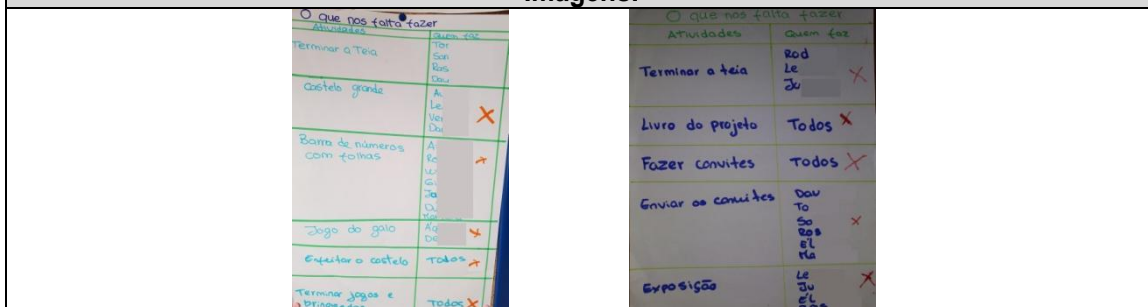 Imagens:
O que nos falta fazer
Atividades Quem faz
Terminar a Teia Tor
San
Ros
Dav
Castelo grande A
Le
Ver
Da
Barra de números A
com folhas Ro
Ja
Jogo do galo
De
Enfeitar o castelo Todos
Terminar jogos e
Todos
O que nos falta fazer
Atividades Quem faz
Terminar a teia Rod
Le
Ju
Livro do projeto Todos
Fazer convites Todos
Enviar os convites Dav
To
So
Ros
El
Ma
Exposição Le
Ju
El